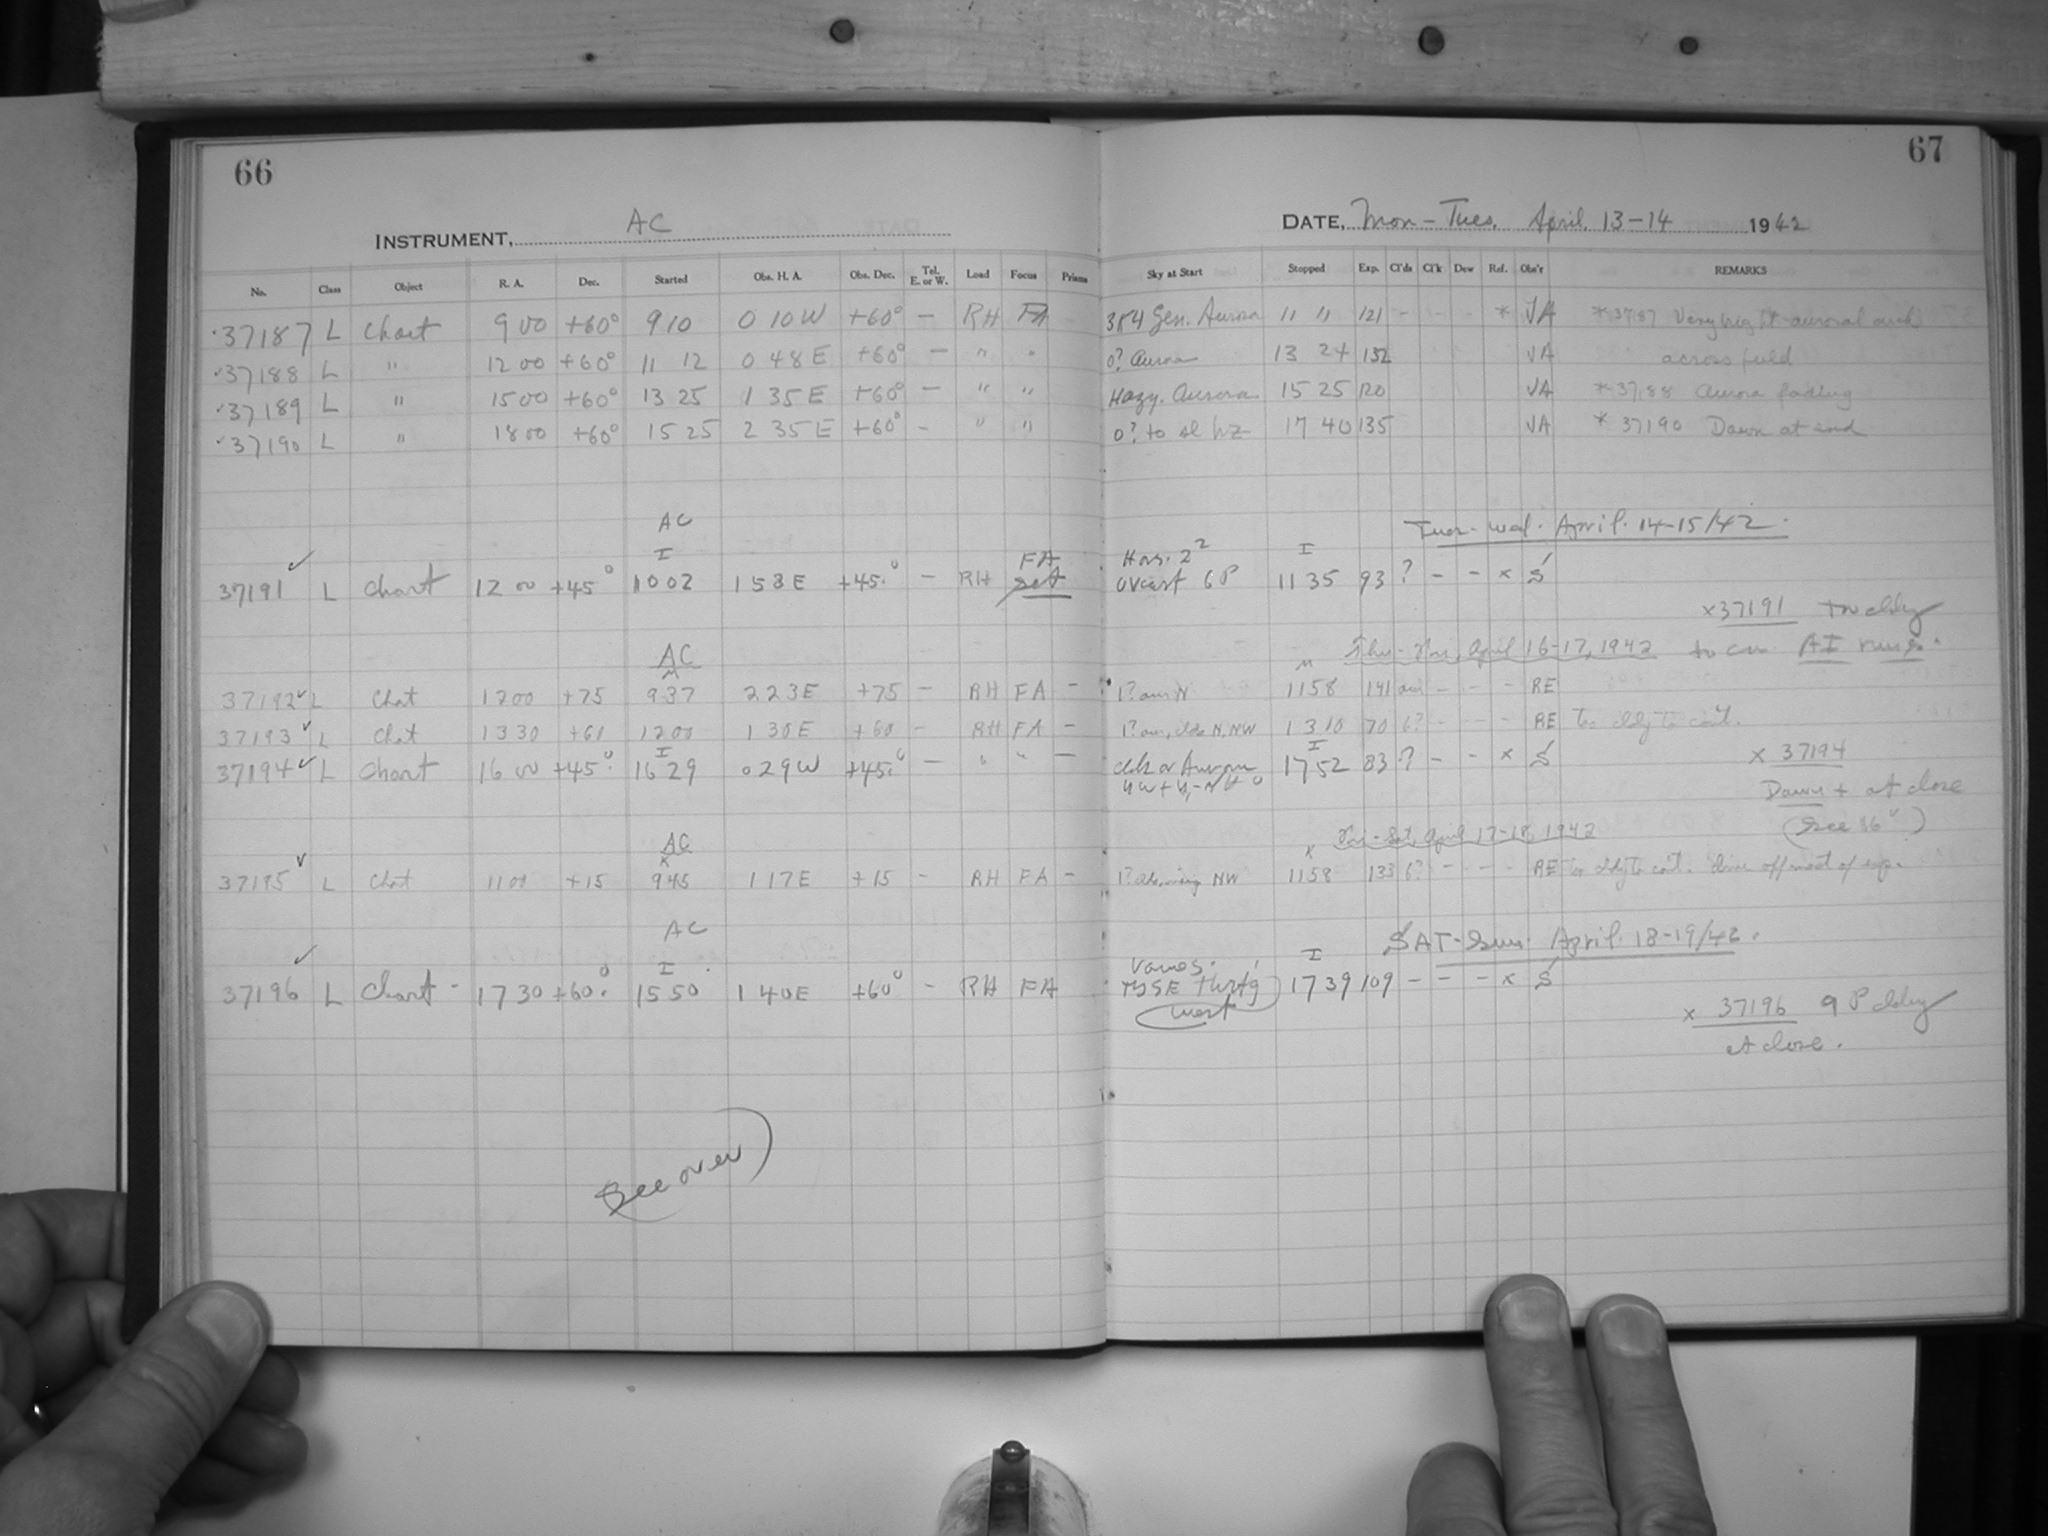 66
67
INSTRUMENT, AC
DATE, Mon-Tues. April 13-14 1942
No. Class Object R. A. Dec. Started Obs. H. A. Obs. Dec. Tel. E. or W. Load Focus Prisms Sky at Start Stopped Exp. Cl'ds Cl'k Dew Ref. Obs'r REMARKS
37187 L Chart 9 00 +60° 9 10 0 10 W +60° - RH FA Gen. Aurora 11 11 121 - - - * JA * 37187 Very bright auroral arch
37188 L " 12 00 +60° 11 12 0 48 E +60° - " " 0? Aurora 13 24 132 JA across field
37189 L " 15 00 +60° 13 25 1 35 E +60° - " " Hazy. Aurora 15 25 120 JA * 37188 Aurora fading
37190 L " 18 00 +60° 15 25 2 35 E +60° - " " 0? to sl hz 17 40 135 JA * 37190 Dawn at end
AC
Tues-Wed. April. 14-15/42.
I FA I
37191 L Chart 12 00 +45° 10 02 1 58 E +45.° - RH set overcast 6P 11 35 93 ? - - x S
x37191 too cldy
AC Thu-Fri, April 16-17, 1942 to cu AI runs.
37192 L Chart 12 00 +75 9 37 2 23 E +75 - RH FA - 1? aur N 11 58 141 aur - - - RE
37193 L Chart 13 30 +60 12 00 1 30 E +60 - RH FA - 1? aur, clds N, NW 13 10 70 6? - - - RE Too cldy to cont.
I I
37194 L Chart 16 00 +45°. 16 29 0 29 W +45.° - " " - clds or Aurora 17 52 83 ? - - x S x 37194
Dawn + at close
(See 86)
AC Fri-Sat, April 17-18, 1942
37195 L Chart 11 00 +15 9 45 1 17 E +15 - RH FA - 1? clds, rising NW 11 58 133 6? - - - RE Too cldy to cont. Drive off most of exp.
AC
SAT-Sun. April. 18-19/42.
I I
37196 L Chart - 17 30 +60°. 15 50 1 40 E +60° - RH FA 17 39 109 - - - x S
west
x 37196 9 P cldy
at close.
See over)